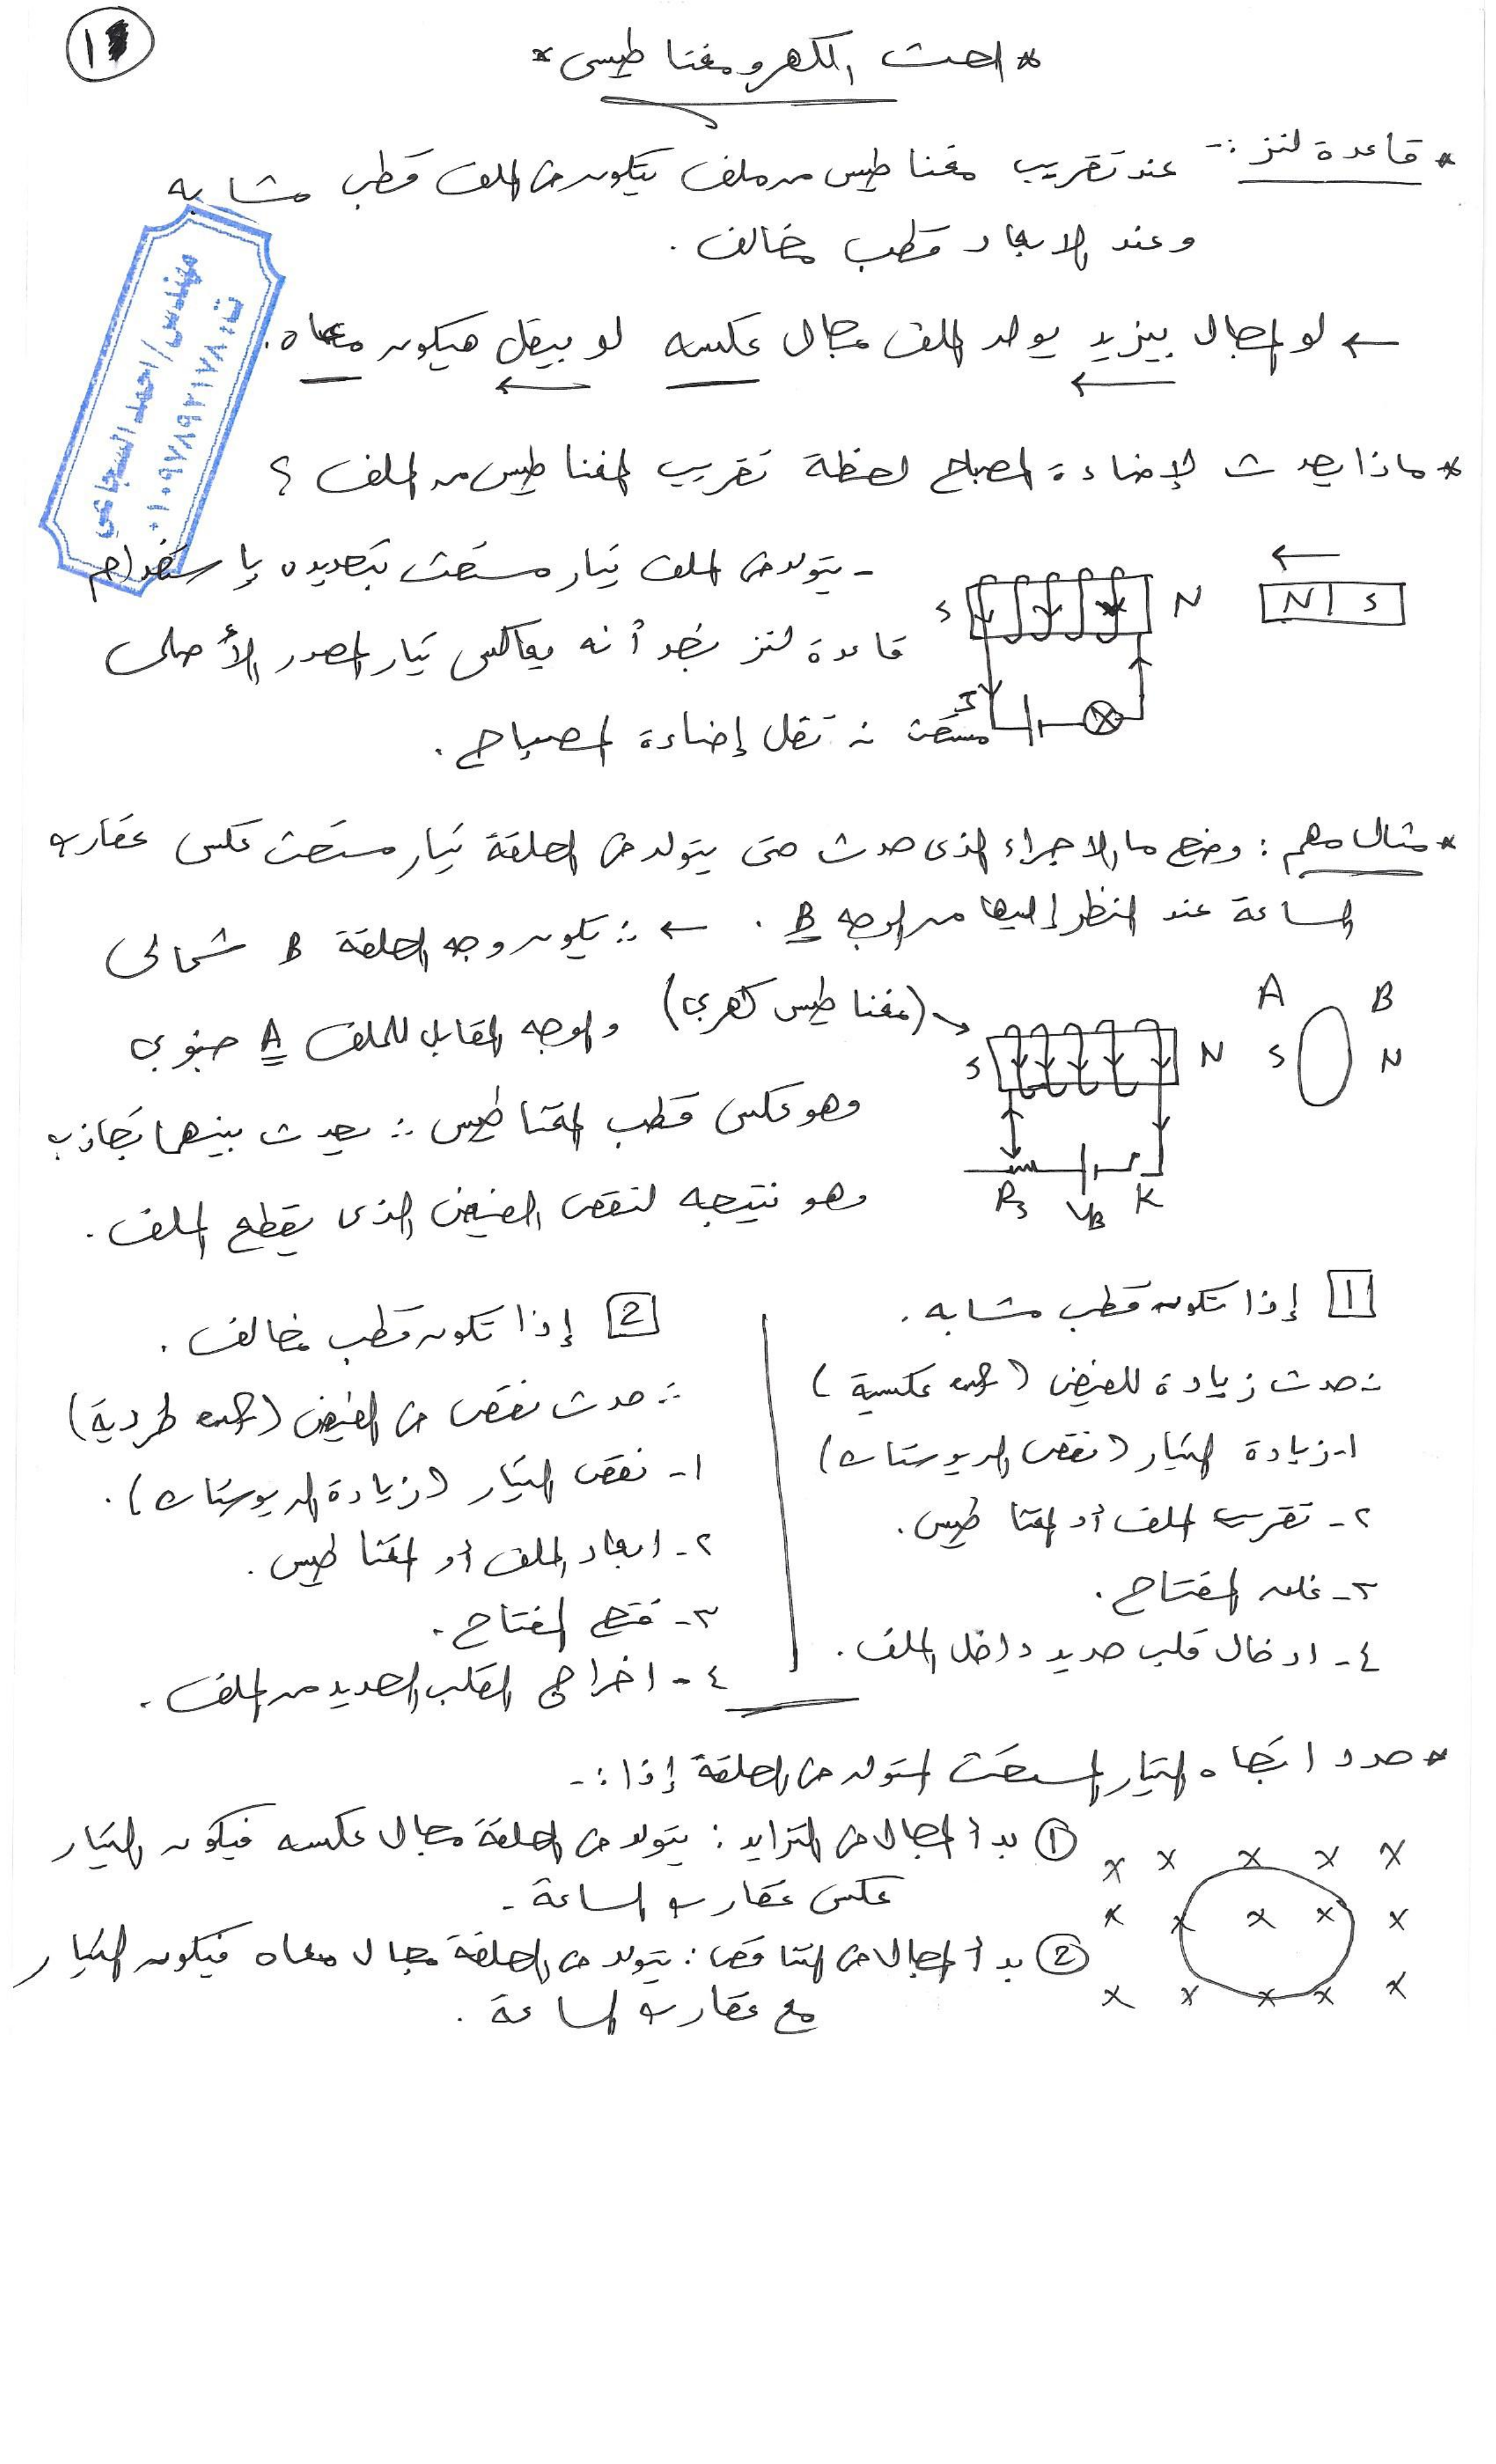 ١
* الحث الكهرومغناطيسى *
* قاعدة لنز :- عند تقريب مغناطيس من ملف يتكون فى الملف قطب مشابه
وعند الابعاد قطب مخالف .
مهندس/احمد السجاعي
ت: ٠١٠٩٧٨٩٢١٧٨
← لو المجال بيزيد يولد الملف مجال عكسه لو بيقل هيكون معاه .
* ماذا يحدث لإضاءة المصباح لحظة تقريب المغناطيس من الملف ؟
- يتولد فى الملف تيار مستحث بتحديده بإستخدام
S N N S
قاعدة لنز نجد أنه يعاكس تيار المصدر الأصلى
I مستحث ∴ تقل إضاءة المصباح .
* مثال مهم : وضح ما الاجراء الذى حدث حتى يتولد فى الحلقة تيار مستحث عكس عقارب
الساعة عند النظر إليها من الوجه B . ← ∴ يكون وجه الحلقة B شمالى
(مغناطيس كهربي) والوجه المقابل للملف A جنوبي
A B
S N S N
وهو عكس قطب المغناطيس ∴ يحدث بينهما تجاذب
RS VB K
وهو نتيجه لنقص الفيض الذى يقطع الملف .
1 إذا تكون قطب مشابه .
∴ حدث زيادة للفيض (emf عكسية)
١- زيادة التيار (نقص الريوستات)
٢- تقريب الملف أو المغناطيس .
٣- غلق المفتاح .
٤- ادخال قلب حديد داخل الملف .
2 إذا تكون قطب مخالف .
∴ حدث نقص فى الفيض (emf طردية)
١- نقص التيار (زيادة الريوستات) .
٢- ابعاد الملف أو المغناطيس .
٣- فتح المفتاح .
٤- اخراج القلب الحديد من الملف .
* حدد اتجاه التيار المستحث المتولد فى الحلقة إذا :-
① بدأ المجال فى التزايد : يتولد فى الحلقة مجال عكسه فيكون التيار
عكس عقارب الساعة .
② بدأ المجال فى التناقص : يتولد فى الحلقة مجال معاه فيكون التيار
مع عقارب الساعة .
x x x x x
x x x x x
x x x x x